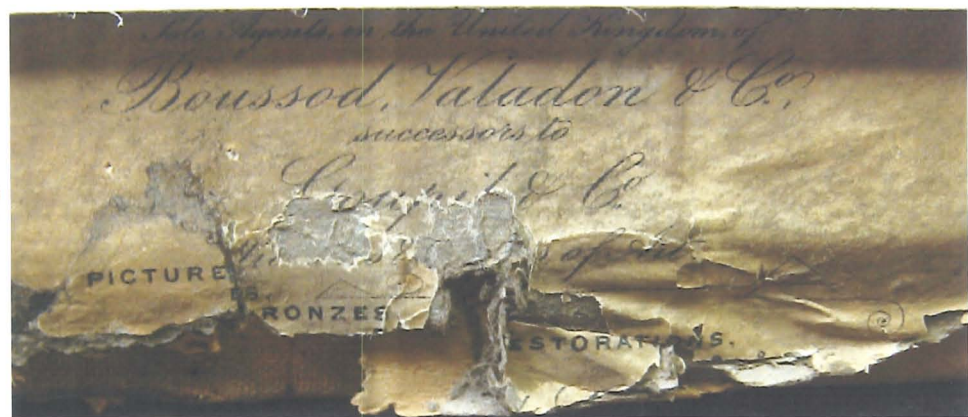 Sole Agents, in the United Kingdom, of
Boussod, Valadon & Co.,
successors to
Goupil & Co.
of Art
PICTURE
RONZES
ESTORATIONS.